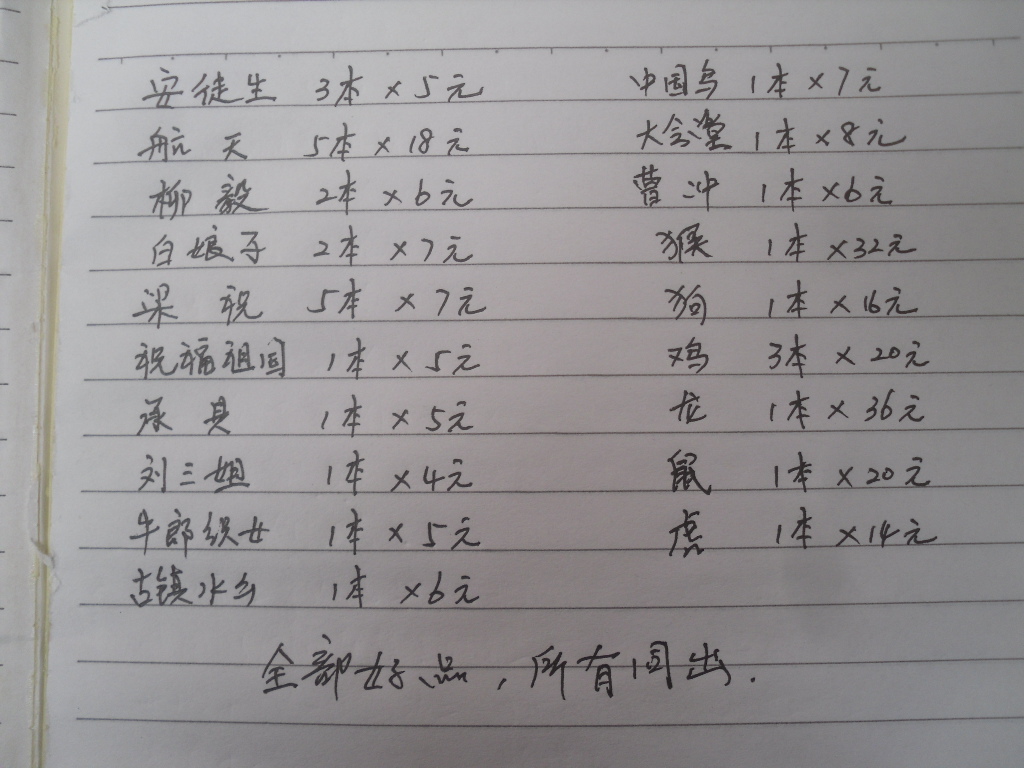 安徒生 3本×5元
航天 5本×18元
柳毅 2本×6元
白娘子 2本×7元
梁祝 5本×7元
祝福祖国 1本×5元
承具 1本×5元
刘三姐 1本×4元
牛郎织女 1本×5元
古镇水乡 1本×6元
中国鸟 1本×7元
大会堂 1本×8元
曹冲 1本×6元
猴 1本×32元
狗 1本×16元
鸡 3本×20元
龙 1本×36元
鼠 1本×20元
虎 1本×14元
全部好品，所有同出.